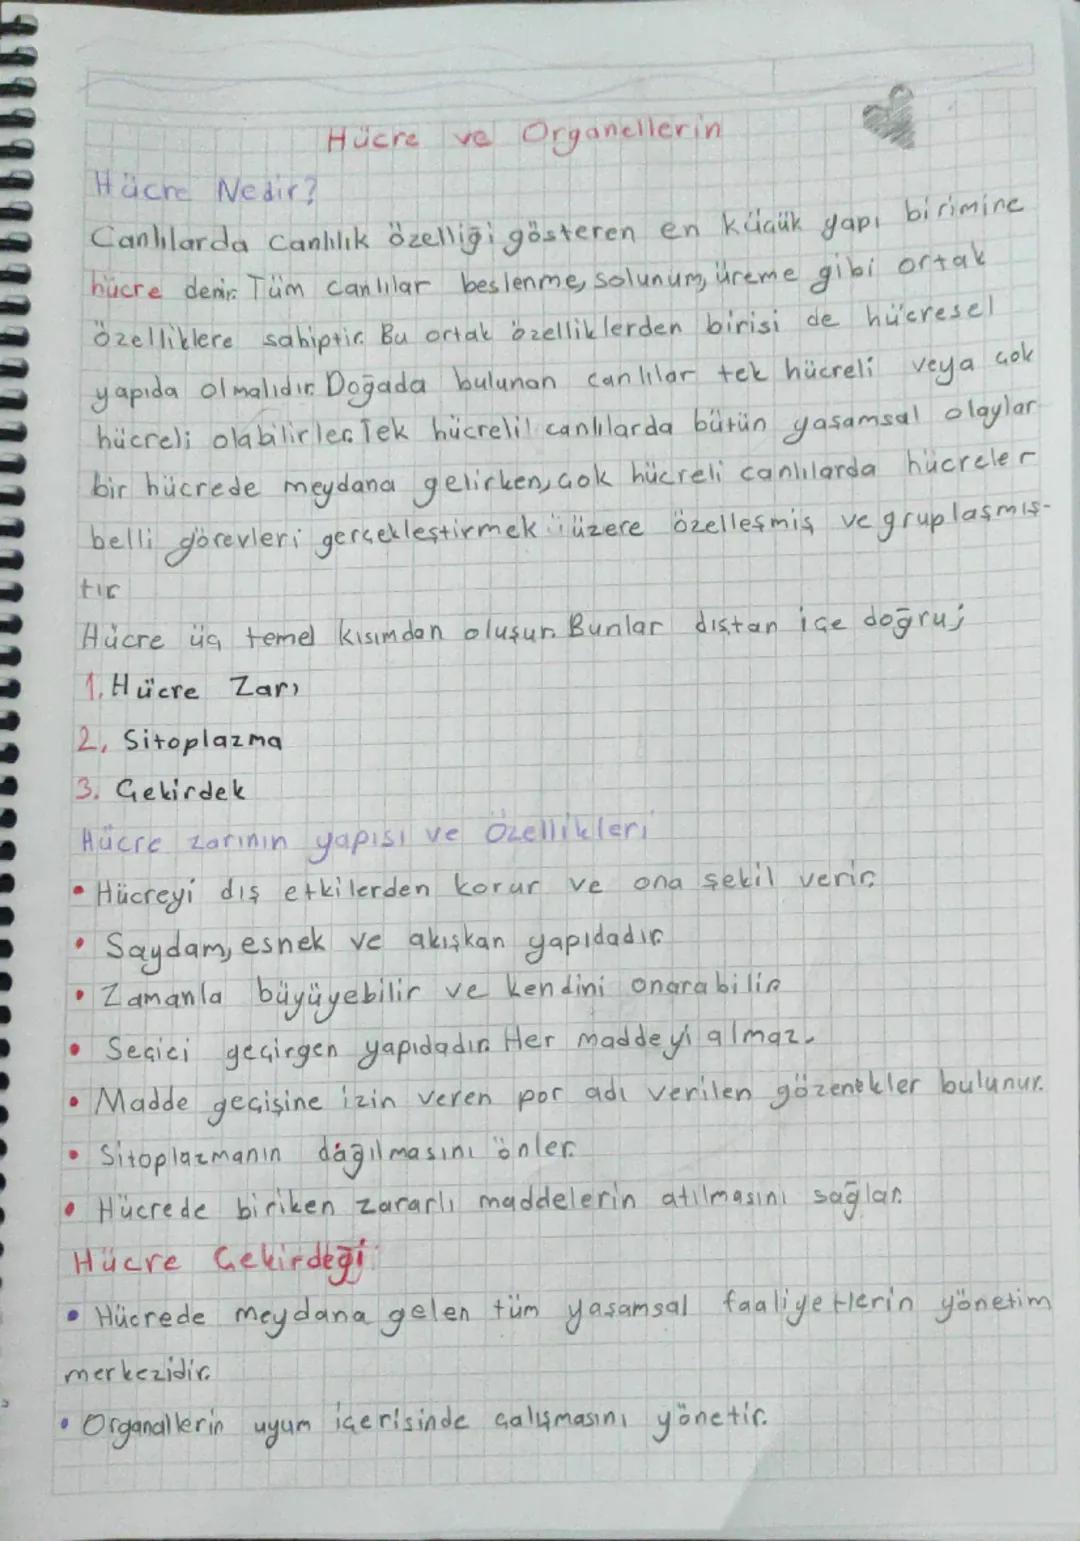 Hücre ve Organellerin
Hücre Nedir?
Canlılarda canlılık özelliği gösteren en küçük yapı birimine
hücre denir. Tüm canlılar beslenme, solunum, üreme gibi ortak
özelliklere sahiptir. Bu ortak özelliklerden birisi de hücresel
yapıda olmalıdır. Doğada bulunan canlılar tek hücreli veya çok
hücreli olabilirler. Tek hücrelil canlılarda bütün yaşamsal olaylar
bir hücrede meydana gelirken, çok hücreli canlılarda hücreler
belli görevleri gerçekleştirmek üzere özelleşmiş ve gruplaşmış-
tır
Hücre üç temel kısımdan oluşur. Bunlar dıştan içe doğru;
1. Hücre Zarı
2. Sitoplazma
3. Çekirdek
Hücre zarının yapısı ve Özellikleri
• Hücreyi dış etkilerden korur ve ona şekil verir.
• Saydam, esnek ve akışkan yapıdadır.
• Zamanla büyüyebilir ve kendini onarabilir.
• Seçici geçirgen yapıdadır. Her maddeyi almaz.
• Madde geçişine izin veren por adı verilen gözenekler bulunur.
• Sitoplazmanın dağılmasını önler.
• Hücrede biriken zararlı maddelerin atılmasını sağlar.
Hücre Çekirdeği:
• Hücrede meydana gelen tüm yaşamsal faaliyetlerin yönetim
merkezidir.
• Organallerin uyum içerisinde çalışmasını yönetir.